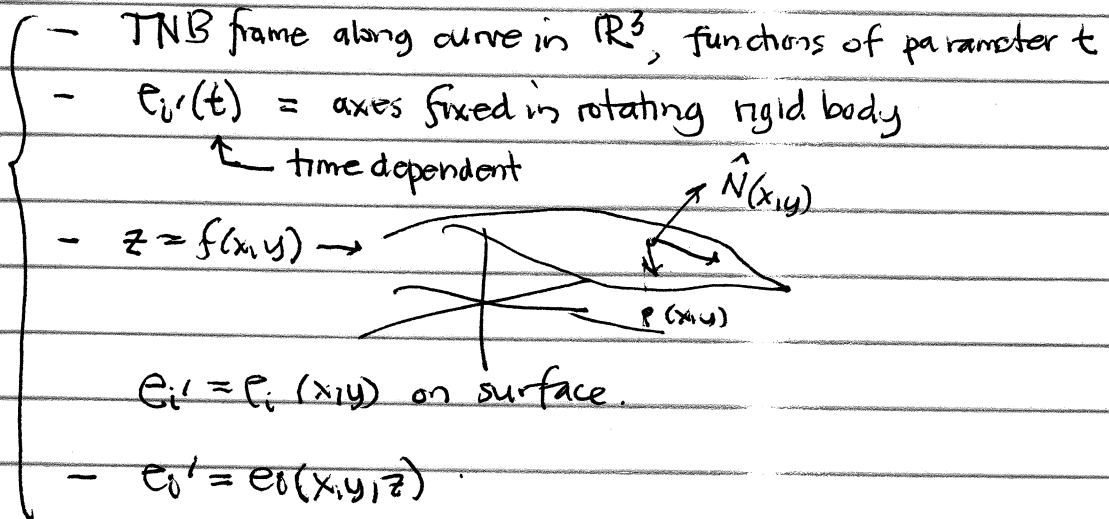 - TNB frame along curve in ℝ³, functions of parameter t
- e_i'(t) = axes fixed in rotating rigid body
time dependent
N̂(x,y)
- z = f(x,y) →
P(x,y)
e_i' = e_i (x,y) on surface.
- e_i' = e_i(x,y,z).